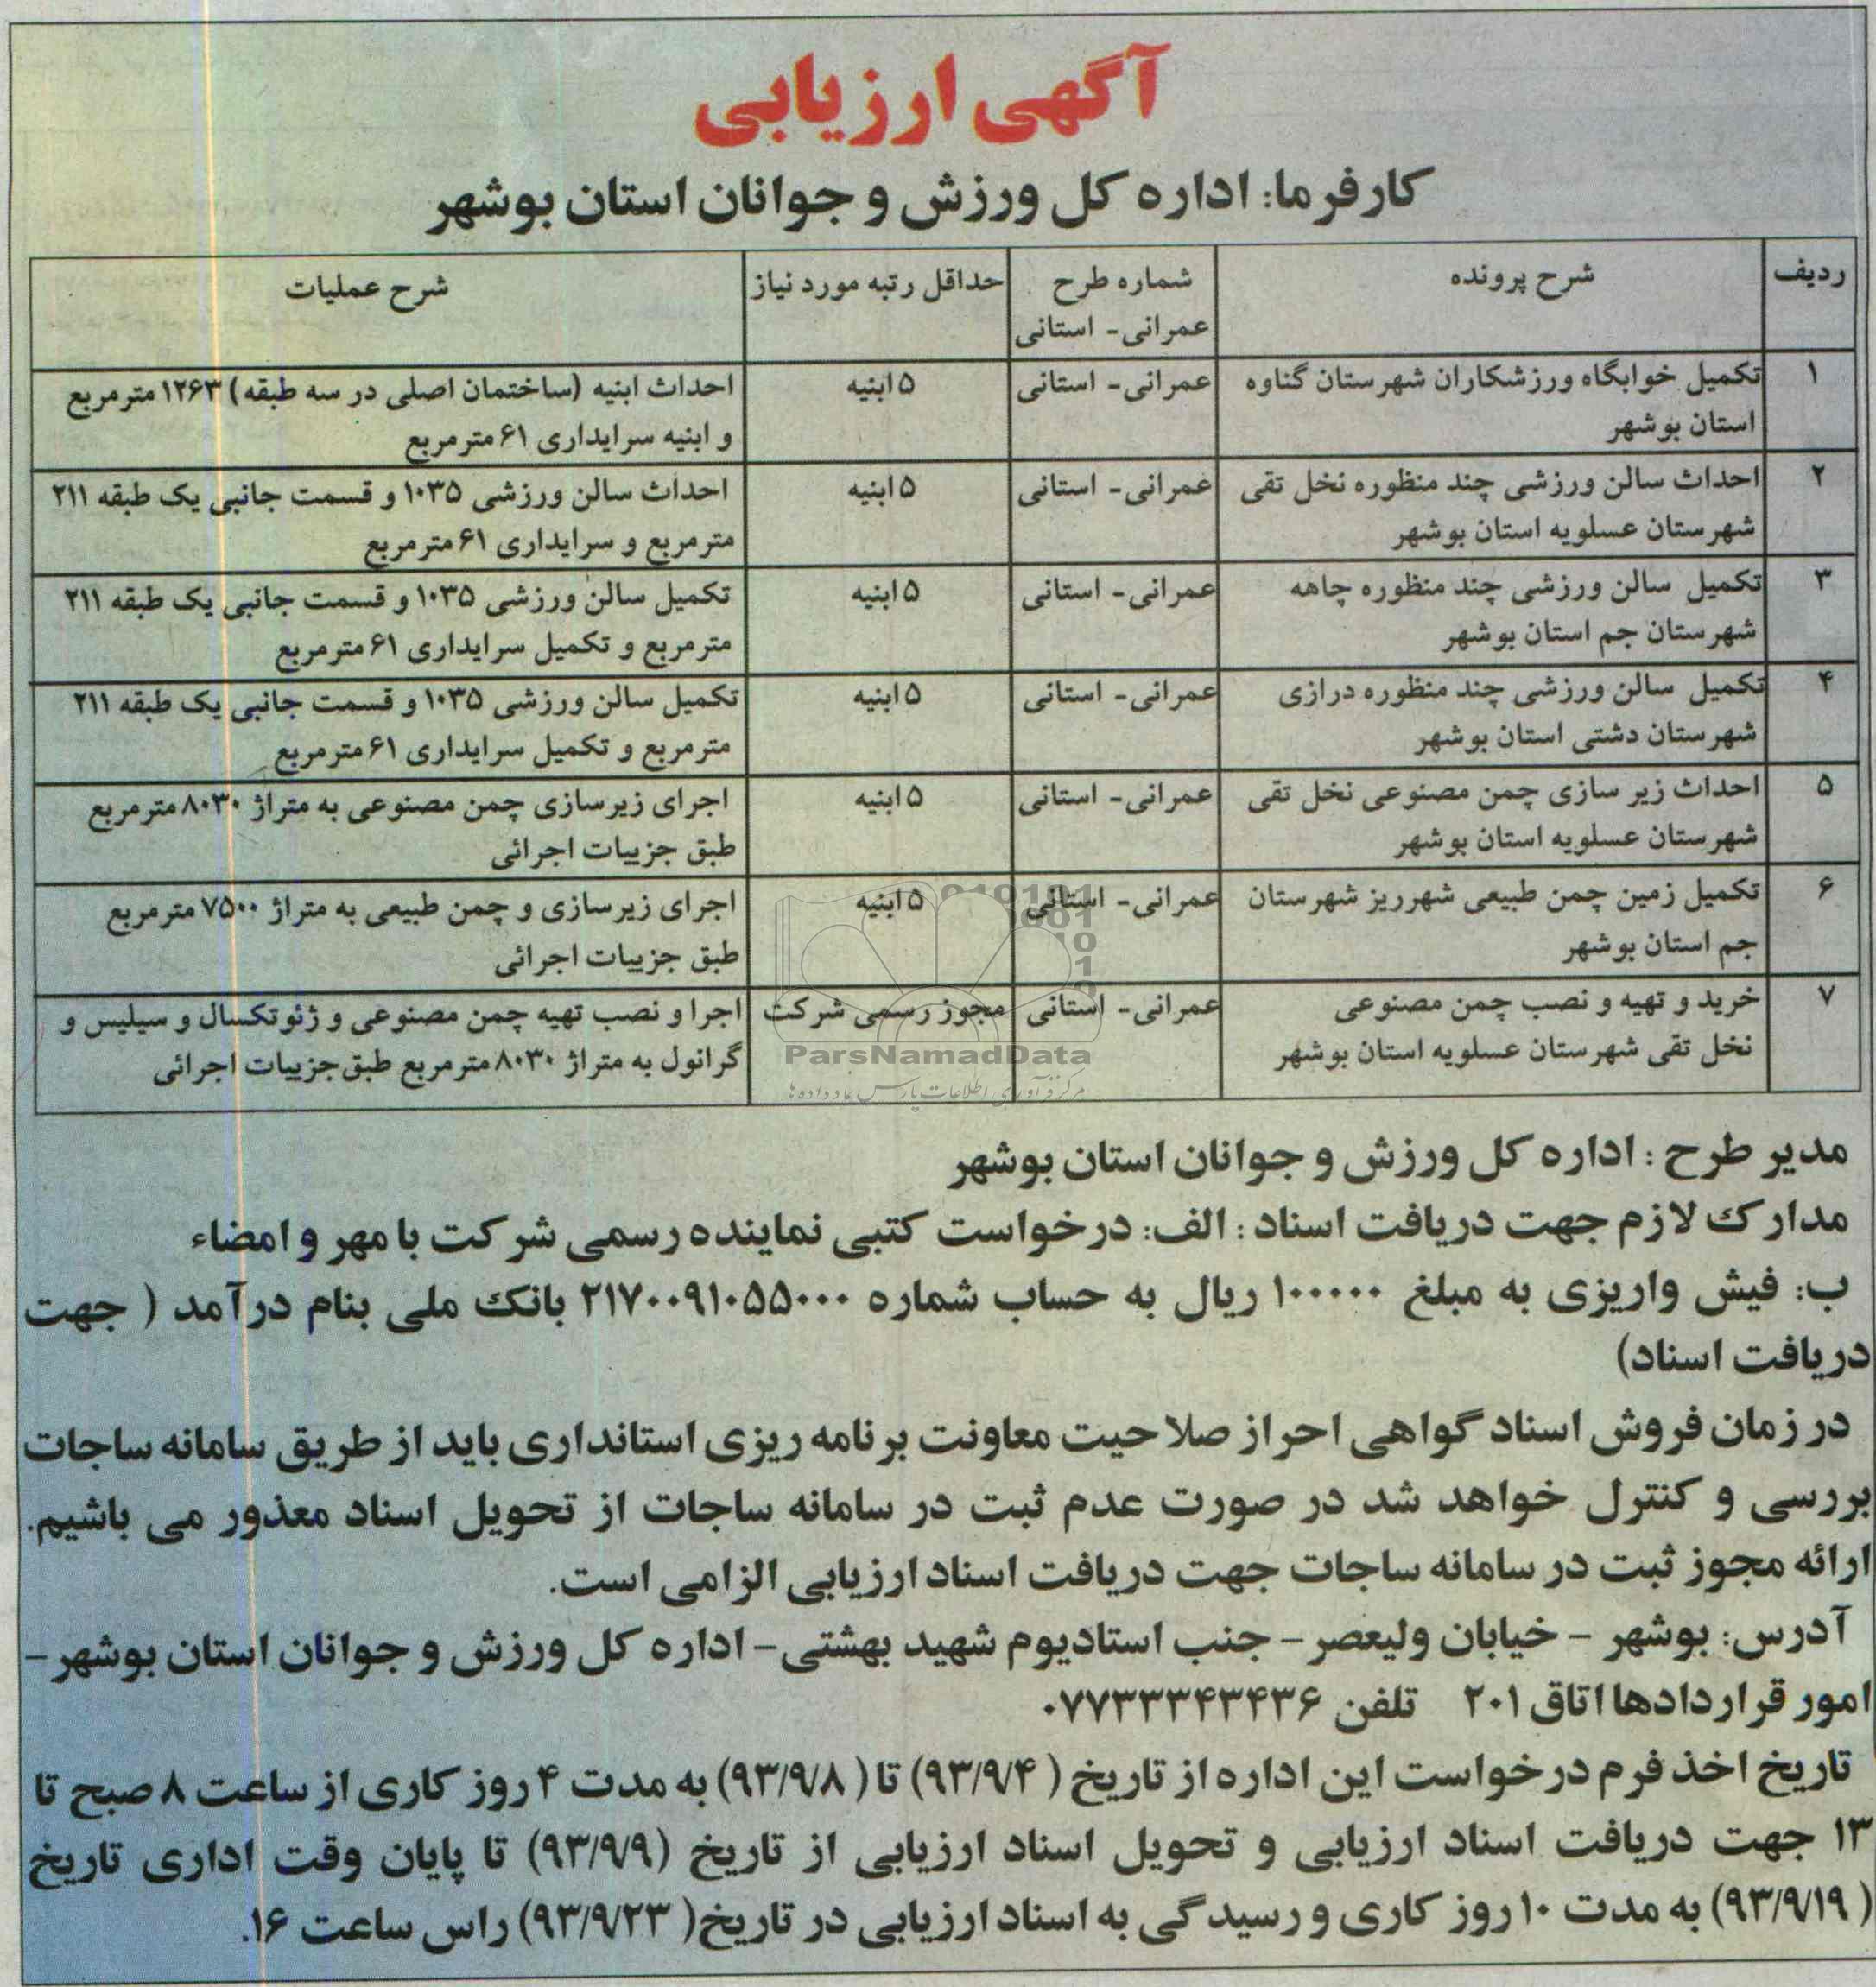 آگهی ارزیابی
کارفرما: اداره کل ورزش و جوانان استان بوشهر
ردیف شرح پرونده شماره طرح حداقل رتبه مورد نیاز شرح عملیات
عمرانی- استانی
۱ تکمیل خوابگاه ورزشکاران شهرستان گناوه عمرانی- استانی ۵ ابنیه احداث ابنیه (ساختمان اصلی در سه طبقه) ۱۲۶۳ مترمربع
استان بوشهر و ابنیه سرایداری ۶۱ مترمربع
۲ احداث سالن ورزشی چند منظوره نخل تقی عمرانی- استانی ۵ ابنیه احداث سالن ورزشی ۱۰۳۵ و قسمت جانبی یک طبقه ۲۱۱
شهرستان عسلویه استان بوشهر مترمربع و سرایداری ۶۱ مترمربع
۳ تکمیل سالن ورزشی چند منظوره چاهه عمرانی- استانی ۵ ابنیه تکمیل سالن ورزشی ۱۰۳۵ و قسمت جانبی یک طبقه ۲۱۱
شهرستان جم استان بوشهر مترمربع و تکمیل سرایداری ۶۱ مترمربع
۴ تکمیل سالن ورزشی چند منظوره درازی عمرانی- استانی ۵ ابنیه تکمیل سالن ورزشی ۱۰۳۵ و قسمت جانبی یک طبقه ۲۱۱
شهرستان دشتی استان بوشهر مترمربع و تکمیل سرایداری ۶۱ مترمربع
۵ احداث زیر سازی چمن مصنوعی نخل تقی عمرانی- استانی ۵ ابنیه اجرای زیرسازی چمن مصنوعی به متراژ ۸۰۳۰ مترمربع
شهرستان عسلویه استان بوشهر طبق جزییات اجرائی
۶ تکمیل زمین چمن طبیعی شهرریز شهرستان عمرانی- استانی ۵ ابنیه اجرای زیرسازی و چمن طبیعی به متراژ ۷۵۰۰ مترمربع
جم استان بوشهر طبق جزییات اجرائی
۷ خرید و تهیه و نصب چمن مصنوعی عمرانی- استانی مجوز رسمی شرکت اجرا و نصب تهیه چمن مصنوعی و ژئوتکسال و سیلیس و
نخل تقی شهرستان عسلویه استان بوشهر گرانول به متراژ ۸۰۳۰ مترمربع طبق جزییات اجرائی
ParsNamadData
مدیر طرح : اداره کل ورزش و جوانان استان بوشهر
مدارک لازم جهت دریافت اسناد : الف: درخواست کتبی نماینده رسمی شرکت با مهر و امضاء
ب: فیش واریزی به مبلغ ۱۰۰۰۰۰ ریال به حساب شماره ۲۱۷۰۰۹۱۰۵۵۰۰۰ بانک ملی بنام درآمد ( جهت
دریافت اسناد)
در زمان فروش اسناد گواهی احراز صلاحیت معاونت برنامه ریزی استانداری باید از طریق سامانه ساجات
بررسی و کنترل خواهد شد در صورت عدم ثبت در سامانه ساجات از تحویل اسناد معذور می باشیم.
ارائه مجوز ثبت در سامانه ساجات جهت دریافت اسناد ارزیابی الزامی است.
آدرس: بوشهر – خیابان ولیعصر – جنب استادیوم شهید بهشتی – اداره کل ورزش و جوانان استان بوشهر –
امور قراردادها اتاق ۲۰۱ تلفن ۰۷۷۳۳۳۴۳۴۳۶
تاریخ اخذ فرم درخواست این اداره از تاریخ ( ۹۳/۹/۴) تا ( ۹۳/۹/۸) به مدت ۴ روز کاری از ساعت ۸ صبح تا
۱۳ جهت دریافت اسناد ارزیابی و تحویل اسناد ارزیابی از تاریخ (۹۳/۹/۹) تا پایان وقت اداری تاریخ
( ۹۳/۹/۱۹) به مدت ۱۰ روز کاری و رسیدگی به اسناد ارزیابی در تاریخ( ۹۳/۹/۲۳) راس ساعت ۱۶.